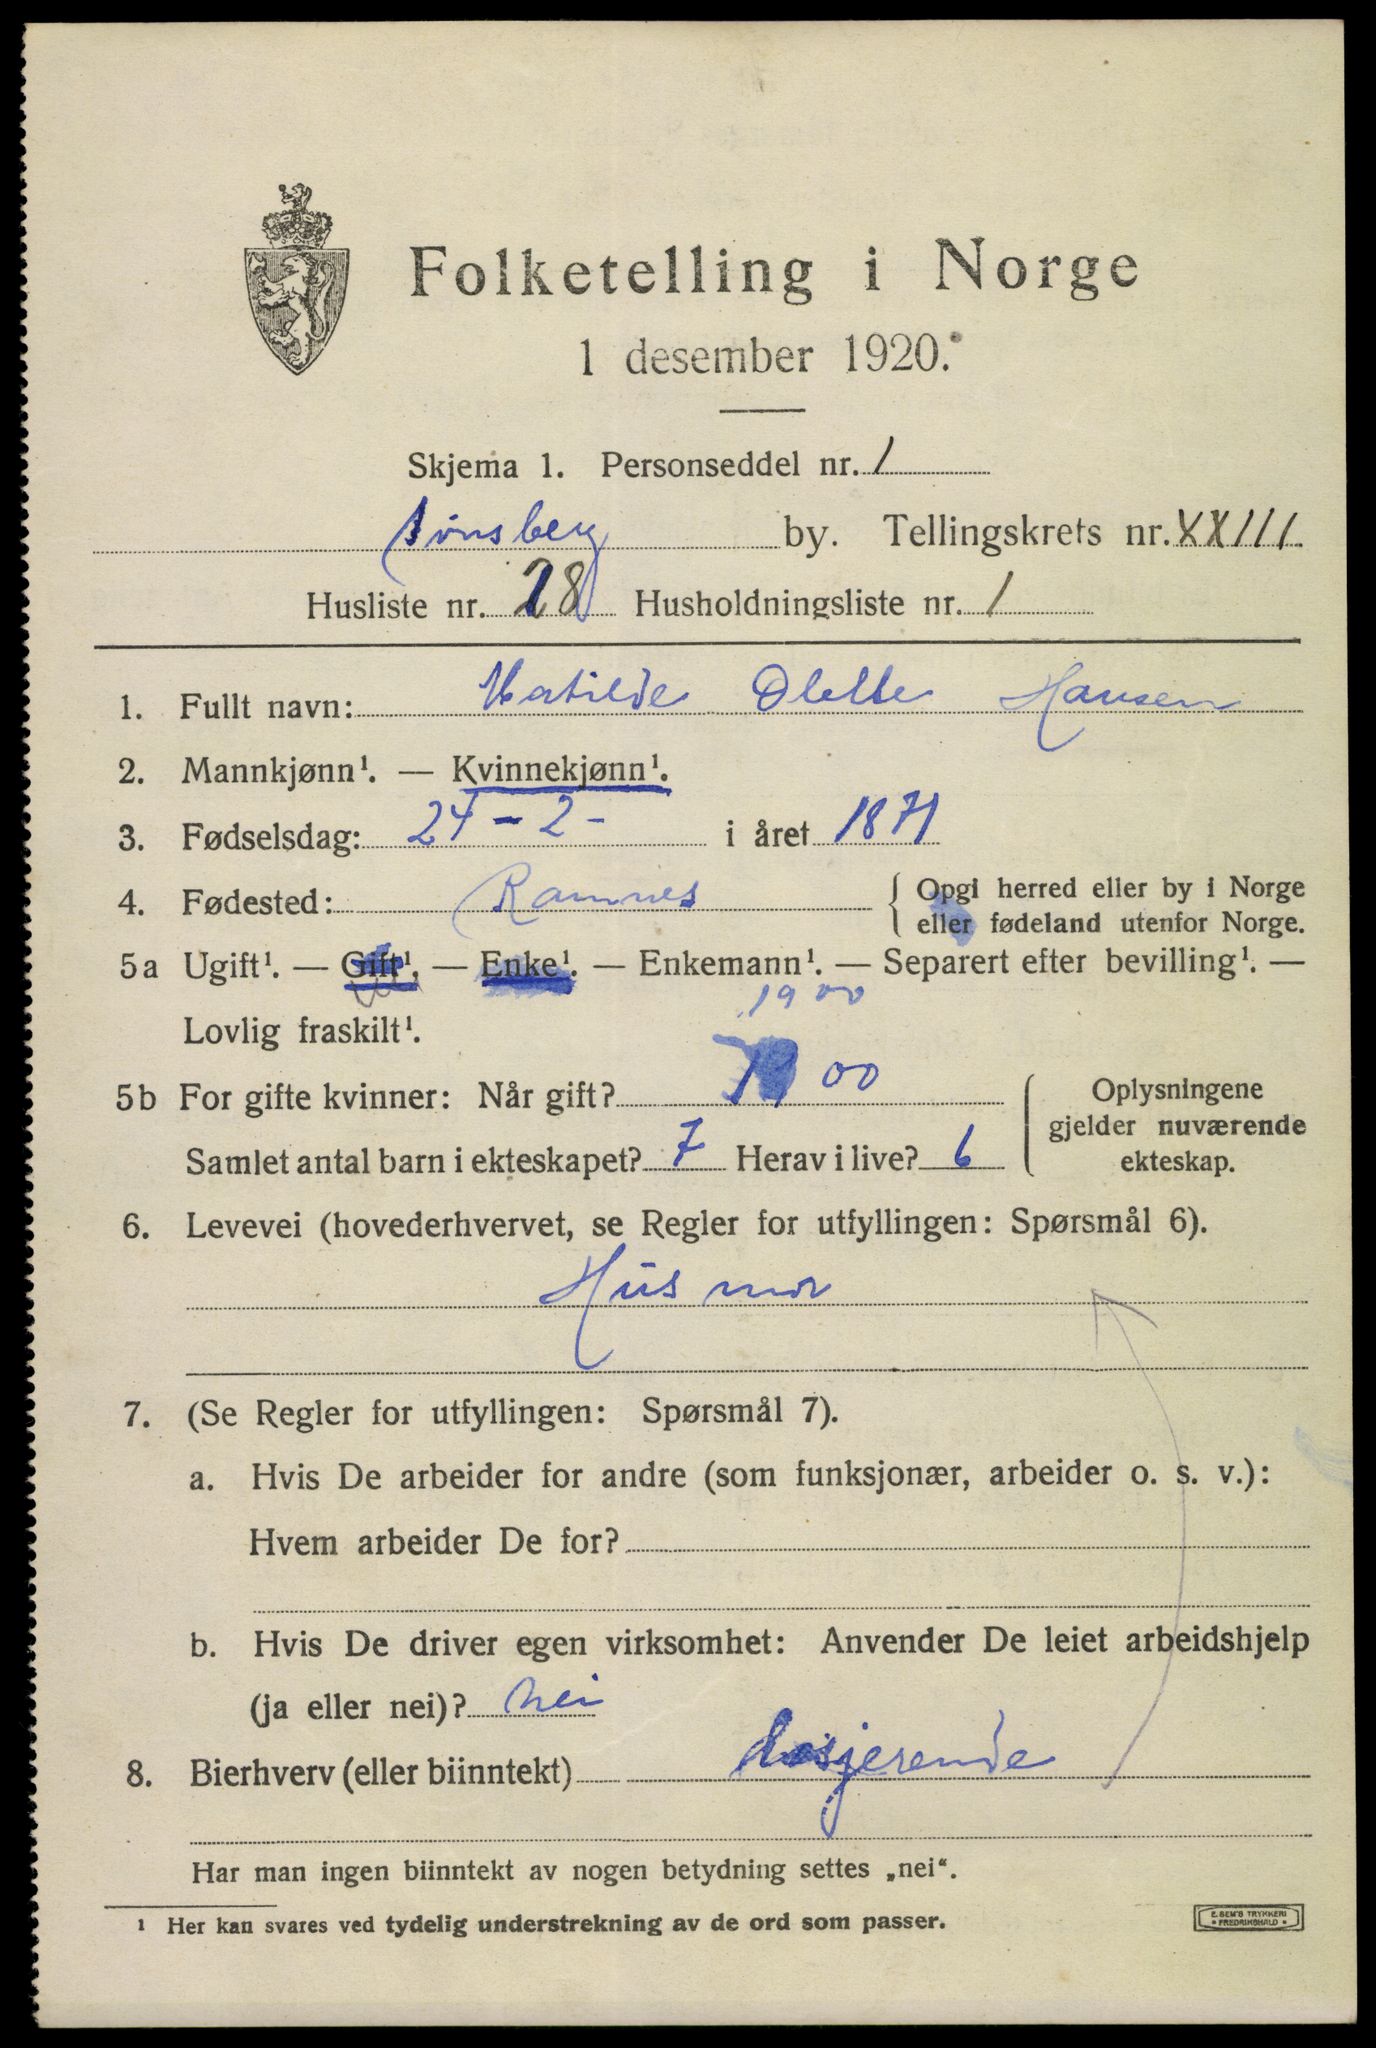 Folketelling i Norge
1 desember 1920.
Skjema 1. Personseddel nr. 1
Tønsberg by. Tellingskrets nr. XXIII
Husliste nr. 28 Husholdningsliste nr. 1
1. Fullt navn: Matilde Olette Hansen
2. Mannkjønn¹. — Kvinnekjønn¹.
3. Fødselsdag: 24 - 2 - i året 1871
4. Fødested: Ramnes { Opgi herred eller by i Norge
eller fødeland utenfor Norge.
5a Ugift¹. — Gift¹. — Enke¹. — Enkemann¹. — Separert efter bevilling¹. —
1900
Lovlig fraskilt¹.
5b For gifte kvinner: Når gift? 1900 { Oplysningene
gjelder nuværende
Samlet antal barn i ekteskapet? 7 Herav i live? 6 ekteskap.
6. Levevei (hovederhvervet, se Regler for utfyllingen: Spørsmål 6).
Husmor
7. (Se Regler for utfyllingen: Spørsmål 7).
a. Hvis De arbeider for andre (som funksjonær, arbeider o. s. v.):
Hvem arbeider De for?
b. Hvis De driver egen virksomhet: Anvender De leiet arbeidshjelp
(ja eller nei)? nei
8. Bierhverv (eller biinntekt) Losjerende
Har man ingen biinntekt av nogen betydning settes „nei“.
¹ Her kan svares ved tydelig understrekning av de ord som passer.
E. SEM'S TRYKKERI
• FREDRIKSHALD •